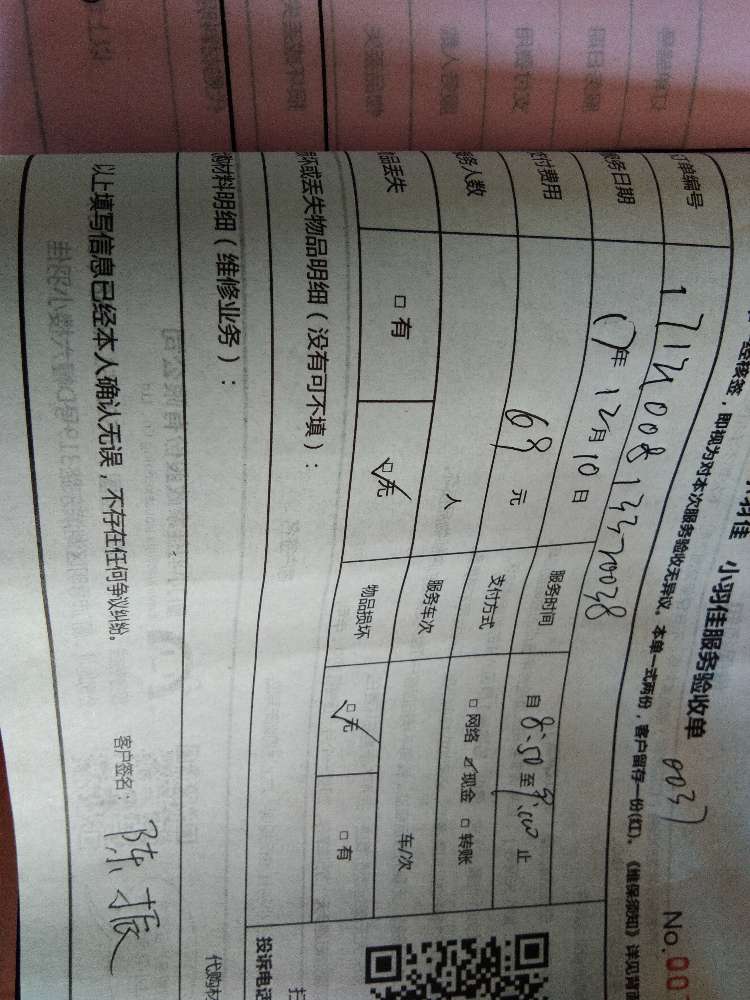 小羽佳服务验收单
0037
No.00
经核签，即视为对本次服务验收无异议。本单一式两份，客户留存一份(红)。《维保须知》详见背面
订单编号
服务日期 17年12月10日 服务时间 自8:50至9:00止
支付费用 69元 支付方式 □网络 ☑现金 □转账
服务人数 人 服务车次 车/次
物品丢失 □有 ☑无 物品损坏 ☑无 □有
损坏或丢失物品明细（没有可不填）：
材料明细（维修业务）：
以上填写信息已经本人确认无误，不存在任何争议纠纷。
客户签名：陈振
投诉电话
代购材